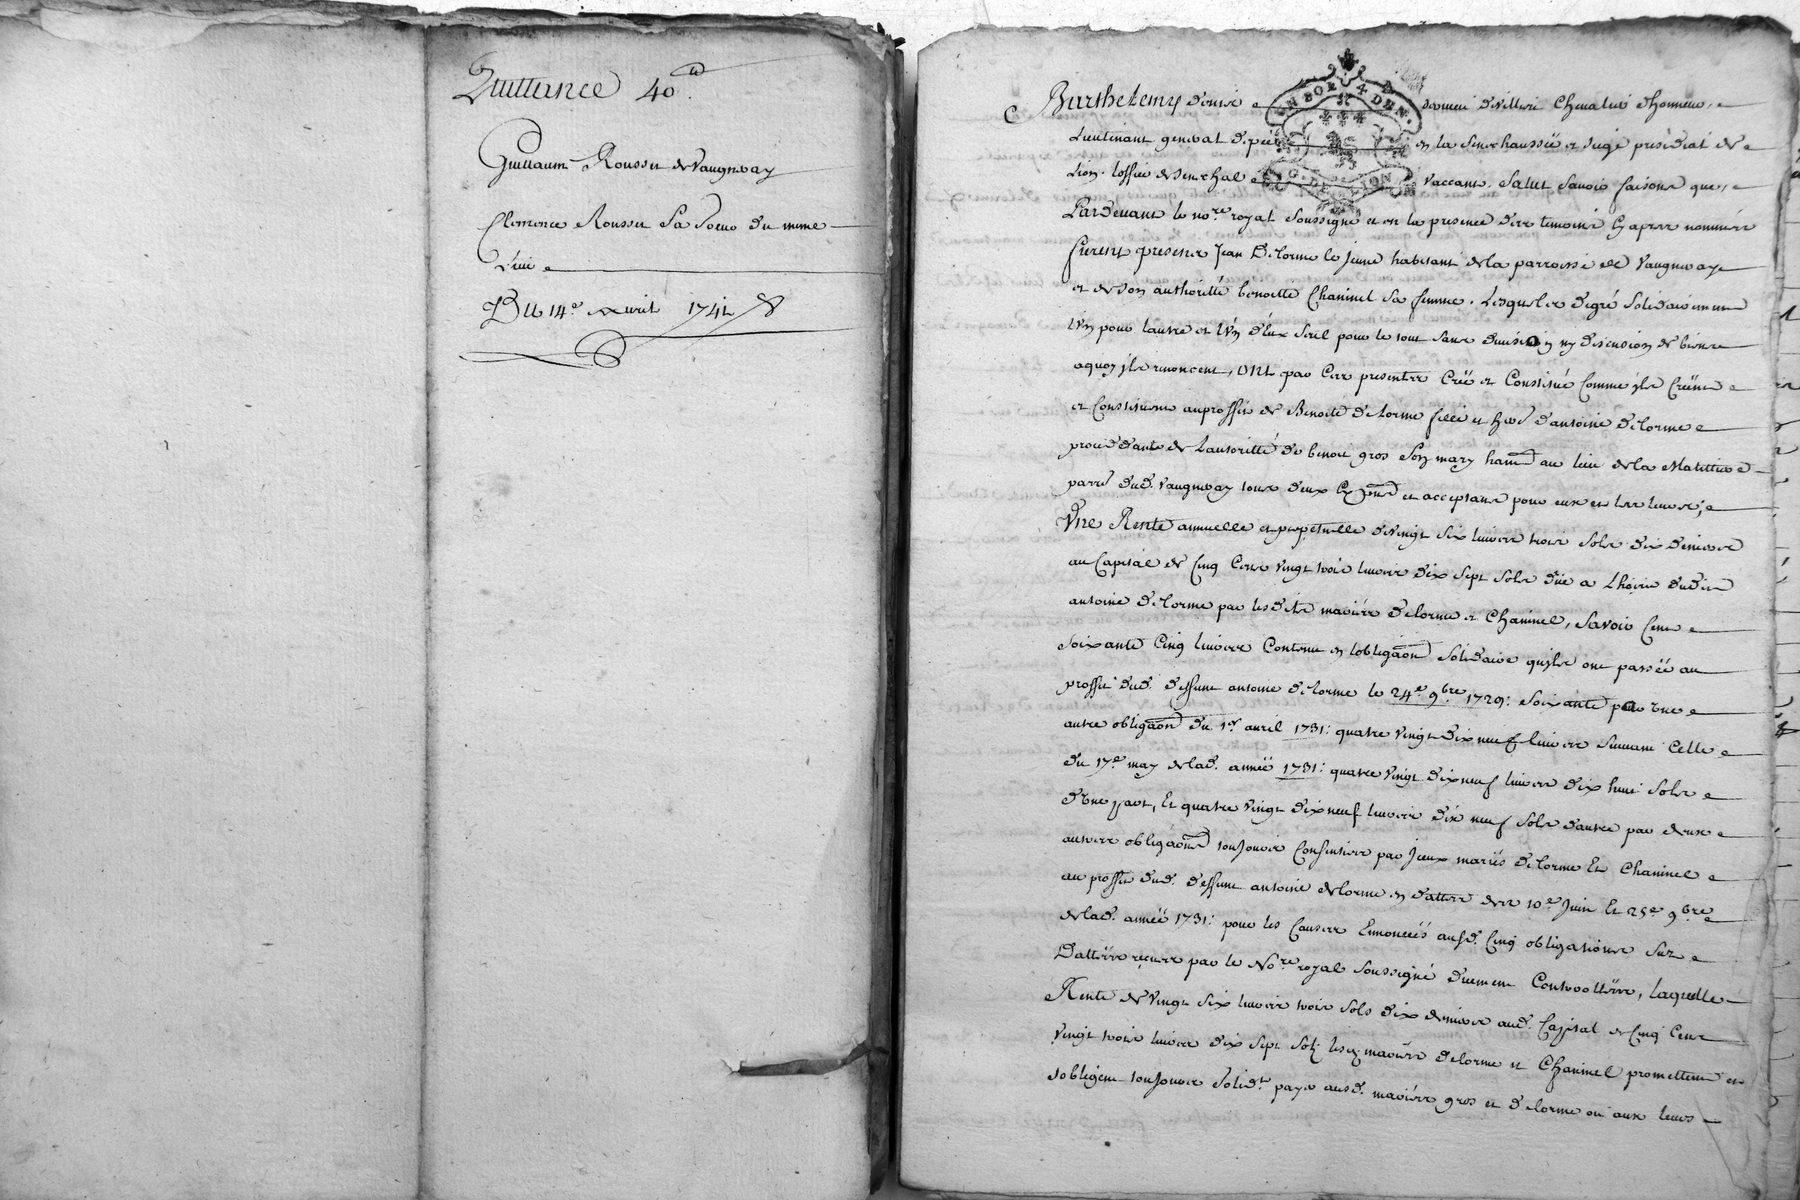 Quittance 40ᵗᵗ
Guillaume Rousset de Vaugneray
Clemence Rousset Sa Soeur du meme
Lieu
Du 14e avril 1741
Barthelemy Chevalier d'honneur
Lieutenant general d'épée en la Senechaussée et siege présidial de
Lion. l'office de Senechal vaccant. Salut Savoir faisons que
Pardevant le nore royal soussigné et en la presence des temoins cy apres nommés
furent presens Jean Delorme le jeune habitant de la parroisse de Vaugneray
et de son authoritté benoitte Chaninel sa femme. Lesquels de gré solidairement
l'Un pour lautre et l'Un d'eux seul pour le tout sans division ny discussion de biens
aquoy ils renoncent, ont par ces presentes Créé et Constitué Comme ils Créent
et Constituent au proffit de Benoite delorme fille et d'antoine delorme
procedante de Lautoritté de benoit gros son mary habnt au lieu de la
parre dud. Vaugneray tous deux cy pnts et acceptans pour eux et les leurs,
Une Rente annuelle et perpetuelle de vingt six livres trois sols dix deniers
au Capital de Cinq Cens vingt trois livres dix sept sols düe a Lhoirie dudit
antoine delorme par lesdits mariés delorme et Chaninel, Savoir Cent
soixante Cinq livres Contenu en lobligaõn solidaire quils ont passée au
proffit dud. deffunt antoine delorme le 24e. 9bre 1729: soixante par une
autre obligaõn du 1er avril 1731: quatre vingt dix neuf livres suivant Celle
du 17e may de lad. année 1731: quatre vingt dix neuf livres dix huit sols
d'une part, Et quatre vingt dix neuf livres dix neuf sols d'autre par deux
autres obligaõns toujours Consenties par Iceux mariés delorme Et Chaninel
au proffit dud. deffunt antoine delorme en dattes des 10e Juin Et 25e 9bre
de lad. année 1731: pour les Causes Ennoncées ausd. Cinq obligations sus
Dattées reçues par le Nore royal soussigné duement Controollées, laquelle
Rente de vingt six livres trois sols dix deniers aud. Capital de Cinq Cens
vingt trois livres dix sept sols mariés delorme et Chaninel promettent et
s'obligent toujours solidt payer ausd. mariés gros et delorme ou aux leurs